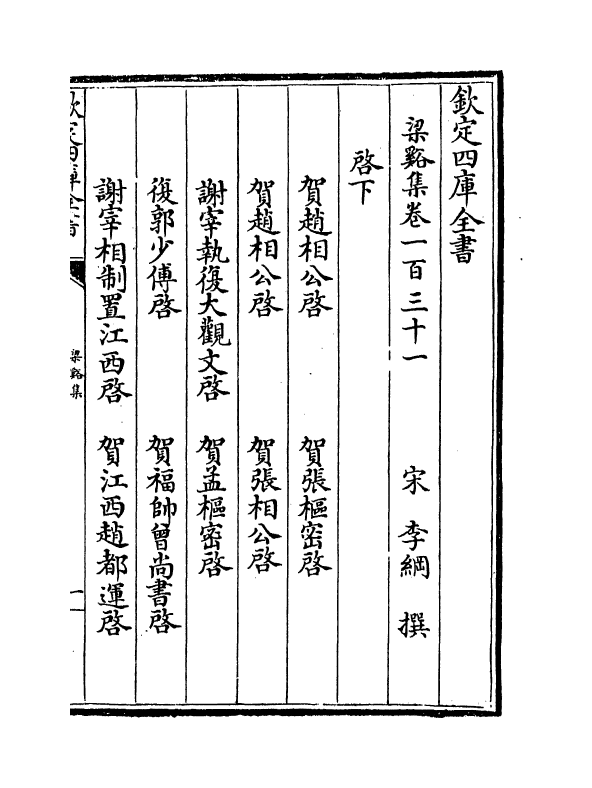 欽定四庫全書
梁谿集卷一百三十一 宋 李綱 撰
啓下
賀趙相公啓 賀張樞密啓
賀趙相公啓 賀張相公啓
謝宰執復大觀文啓 賀孟樞密啓
復郭少傅啓 賀福帥曾尚書啓
謝宰相制置江西啓 賀江西趙都運啓
欽定四庫全書
梁谿集
一